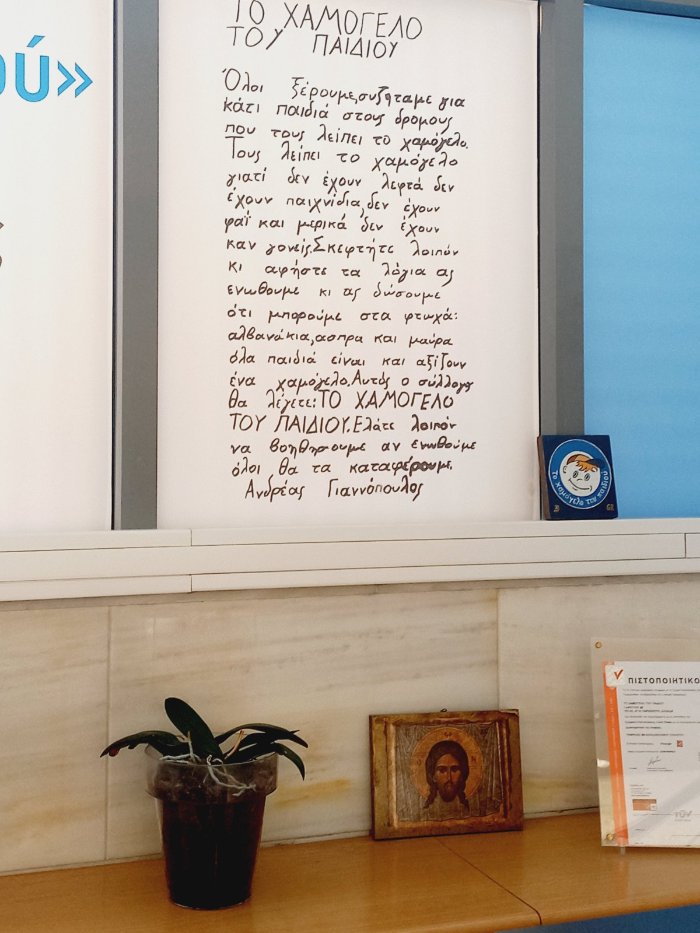 ού»
ΤΟ ΧΑΜΟΓΕΛΟ
ΤΟΥ ΠΑΙΔΙΟΥ
Όλοι ξέρουμε,συζηταμε για
κάτι παιδιά στους δρομους
που τους λείπει το χαμόγελο.
Τους λείπει το χαμόγελο
γιατί δεν έχουν λεφτά δεν
έχουν παιχνίδια,δεν έχουν
φαΐ και μερικά δεν έχουν
καν γονείς.Σκεφτήτε λοιπόν
κι αφήστε τα λόγια ας
ενωθουμε κι ας δώσουμε
ότι μπορούμε στα φτωχά:
αλβανάκια,ασπρα και μαύρα
όλα παιδιά είναι και αξίζουν
ένα χαμόγελο.Αυτός ο σύλλογος
θα λέγετε:ΤΟ ΧΑΜΟΓΕΛΟ
ΤΟΥ ΠΑΙΔΙΟΥ.Ελάτε λοιπόν
να βοηθησουμε αν ενωθούμε
όλοι θα τα καταφέρουμε.
Ανδρέας Γιαννόπουλος
Το χαμόγελο του παιδιού
ΠΙΣΤΟΠΟΙΗΤΙΚΟ
TÜV